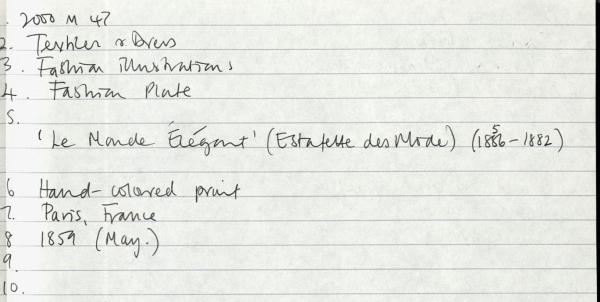 . 2000 M 47
2. Textiles & Dress
3. Fashion illustrations
4. Fashion Plate
5.
'Le Monde Élégant' (Estafette des Mode) (1856-1882)
6 Hand-colored print
7. Paris, France
8 1859 (May.)
9.
10.